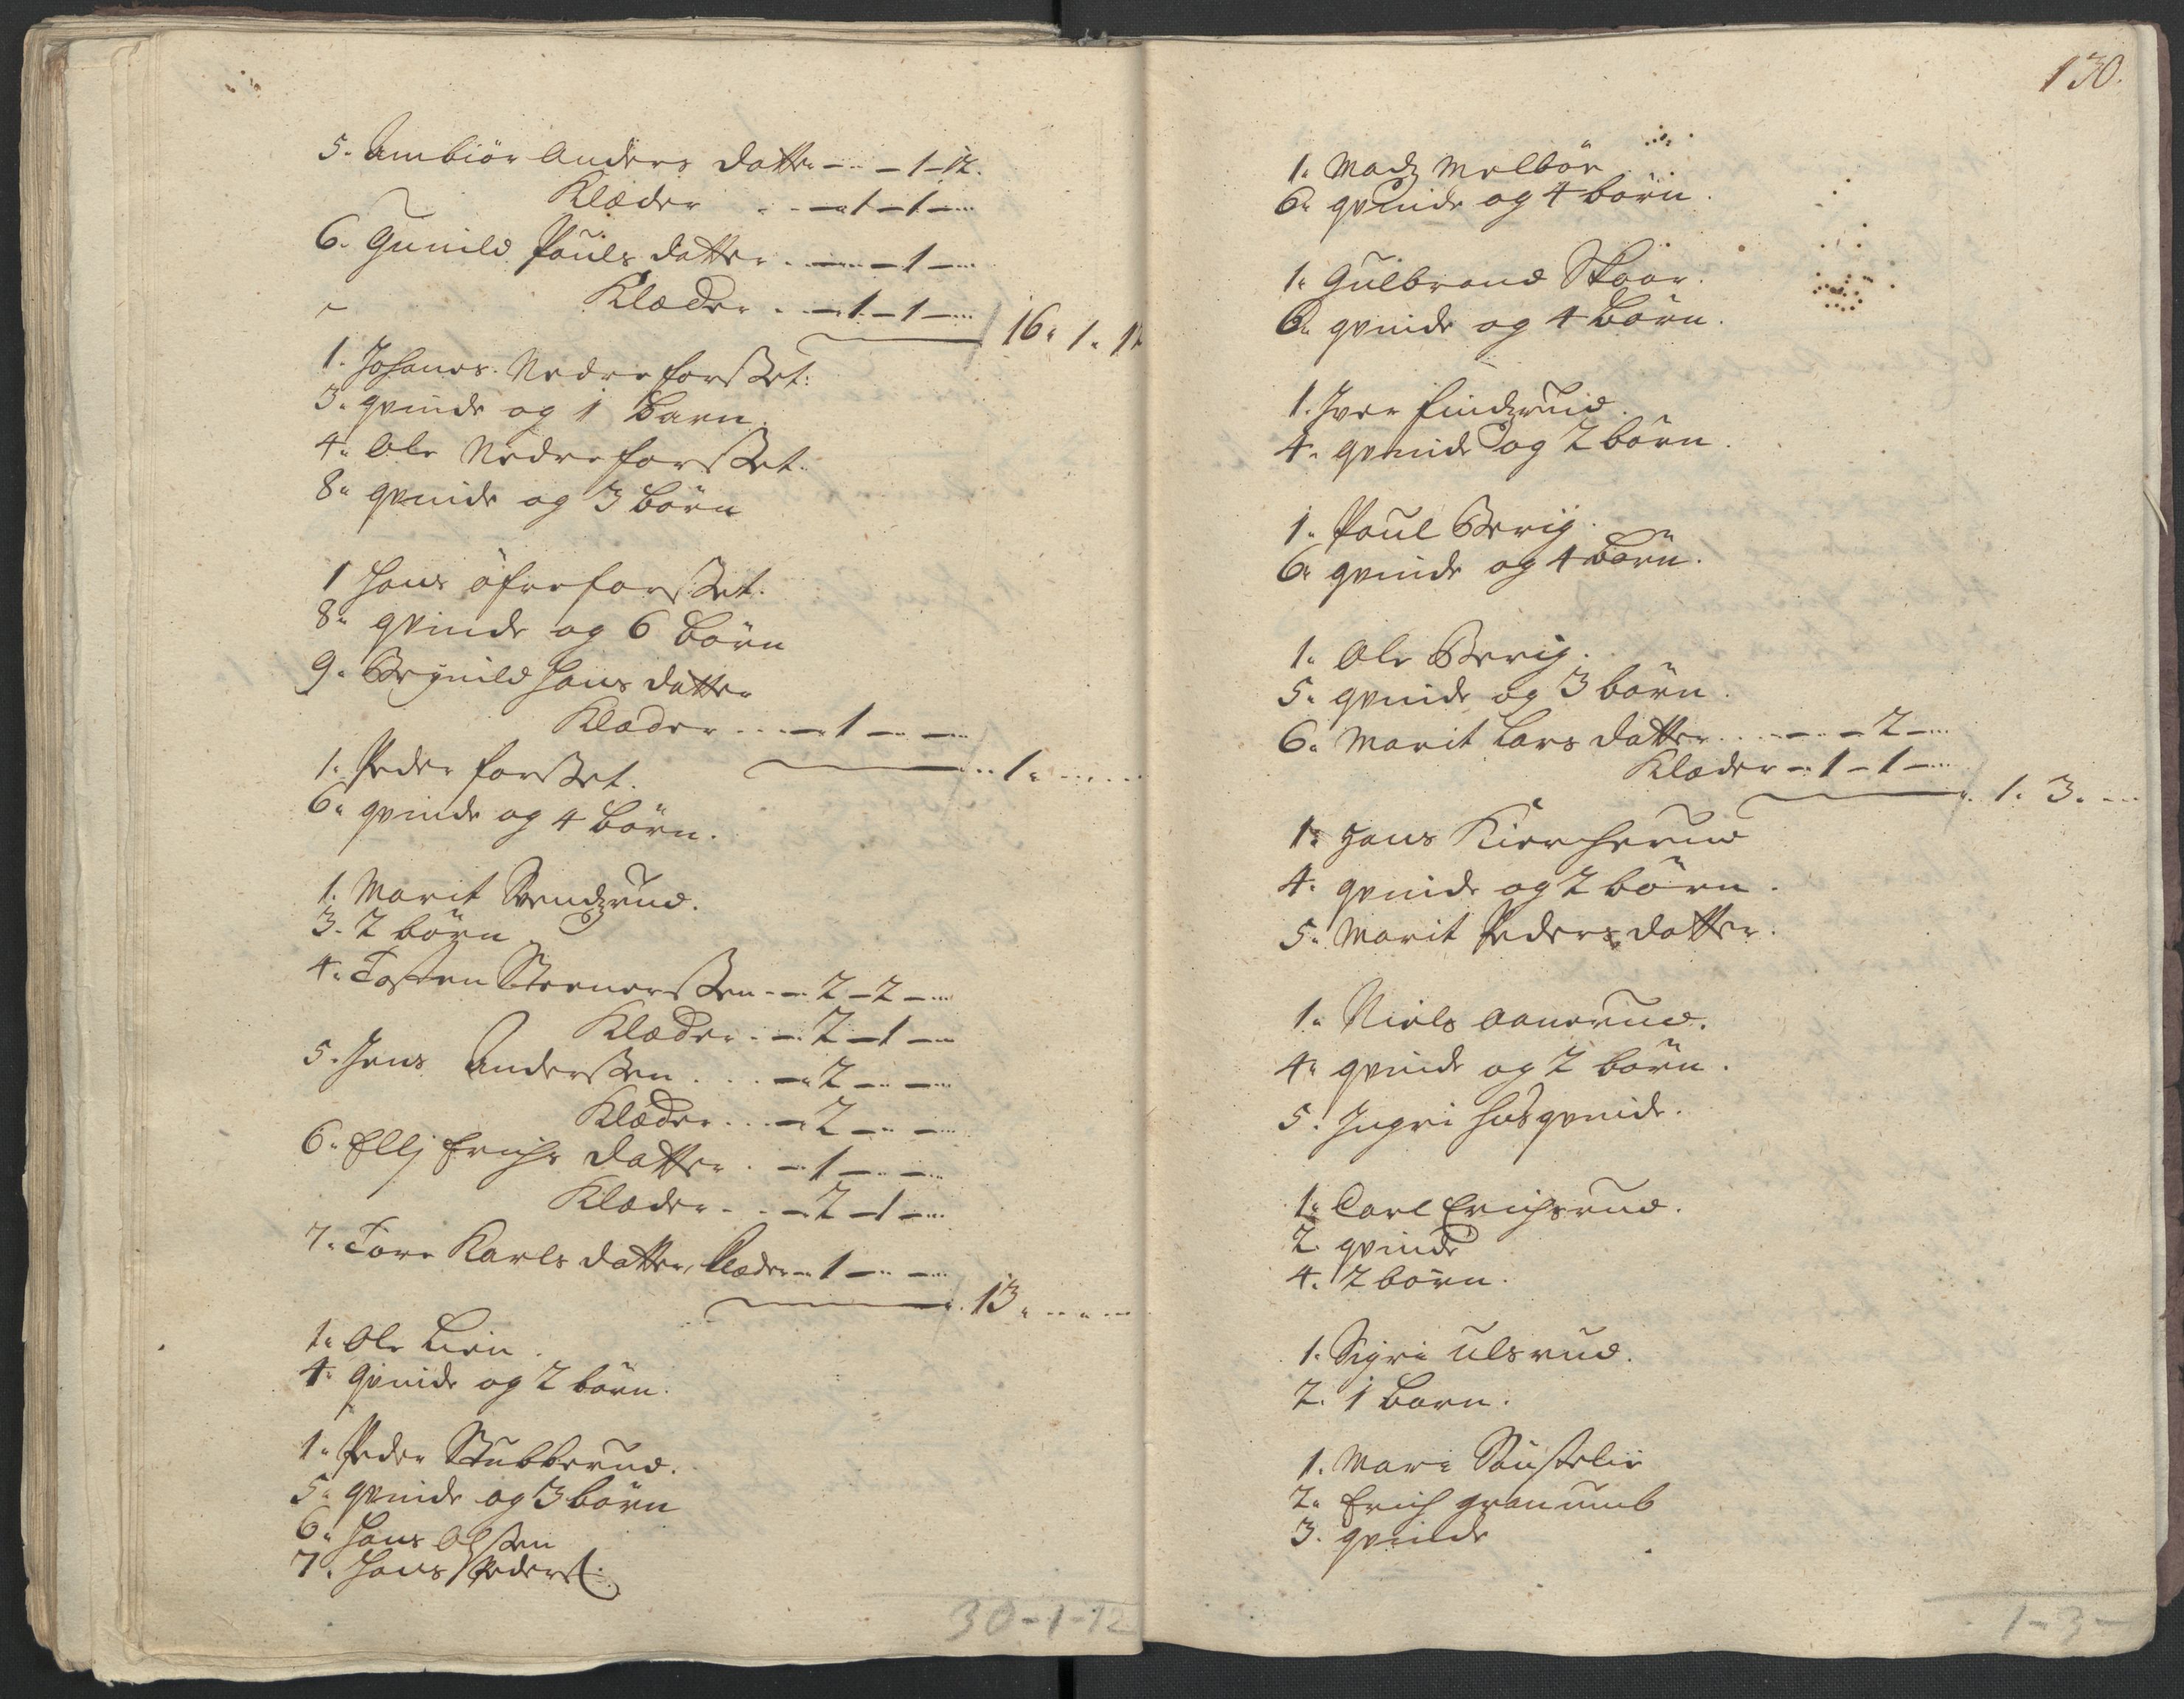 5. Ambiör Anders datter - - 1 - 12.
Klæder . - - 1 - 1 - ...
6. Gunild Pouls datter . - - 1 - ...
Klæder . - 1 - 1 - ... 16. 1. 12
1. Johanes Nedre forsset.
3. qvinde og 1 barn.
4. Ole Nedre forsset.
8. qvinde og 3 börn
1 Hans öfre forsset.
8. qvinde og 6 börn
9. Hans datter
Klæder . . . - 1 - - ...
1. Peder forsset. . . 1. . . . .
6. qvinde og 4 börn.
1. Marit Svendzrud.
3. 2 börn
4. Tosten Steenerssen - - 2 - 2 - ...
Klæder . - 2 - 1 - ..
5. Jens Anderssen . . . - 2 - - ...
Klæder . . . - 2 - - ...
6. Ellj Erichs datter . - 1 - - ...
Klæder . . - 2 - 1 - ...
7. Tore Karls datter, klæder - 1 - - ...
13. . . . .
1. Ole Lien.
4. qvinde og 2 börn.
1. Peder Stubberud.
5. qvinde og 3 börn
6. Hans Olssen
7. Hans Peders:
30-1-12
130.
1. Madz Melbör
6. qvinde og 4 börn.
1. Gulbrand Skoar.
6. qvinde og 4 börn.
1. Iver findzrud.
4. qvinde og 2 börn.
1. Poul Berig.
6. qvinde og 4 börn.
1. Ole Berig.
5. qvinde og 3 börn.
6. Marit Lars datter . . . - - 2 - ...
Klæder - 1 - 1 - ...
1. 3. ...
1. Hans
4. qvinde og 2 börn.
5. Marit Peders datter.
1. Niels Aanerud.
4. qvinde og 2 börn.
5. Ingri husqvinde.
1. Carl Erichsrud.
2. qvinde
4. 2 börn.
1. Sigri Ulsrud.
2. 1 barn.
1. Mari
2. Erich
3. qvinde
1-3-